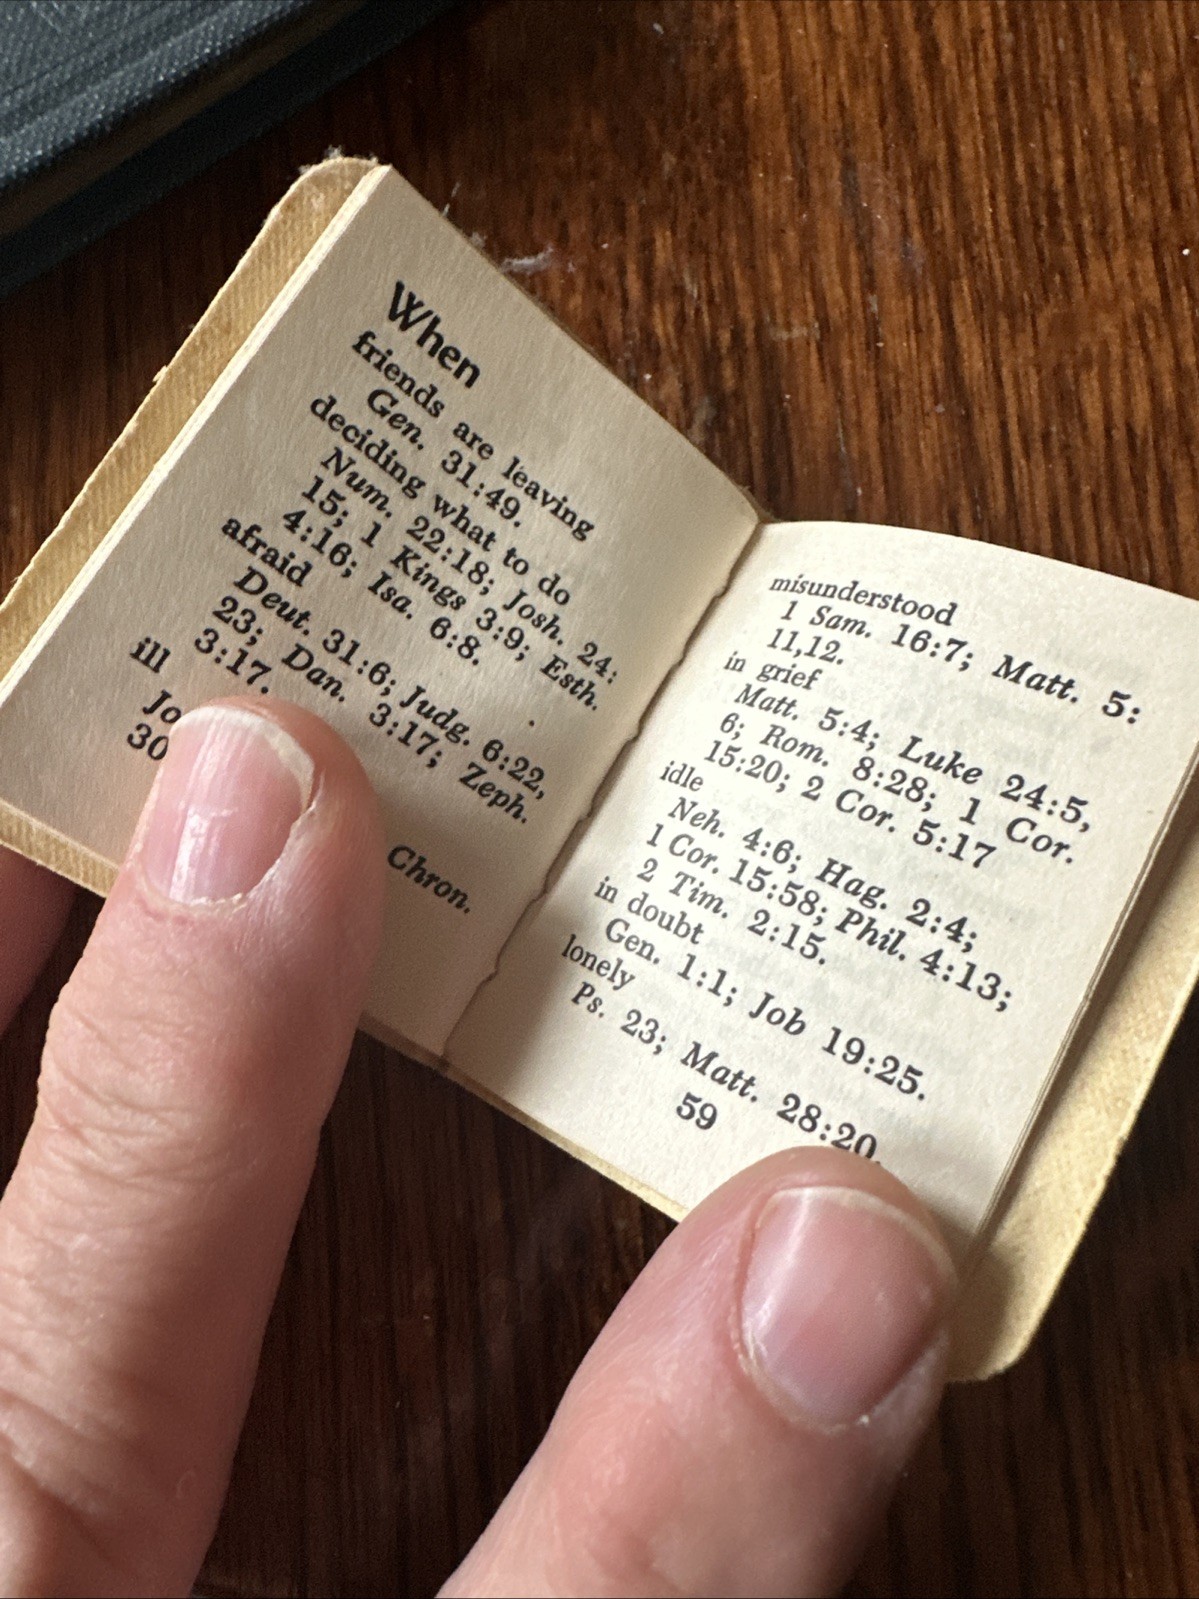 When
friends are leaving
Gen. 31:49.
deciding what to do
Num. 22:18; Josh. 24:
15; 1 Kings 3:9; Esth.
4:16; Isa. 6:8.
afraid
Deut. 31:6; Judg. 6:22,
23; Dan. 3:17; Zeph.
3:17.
ill
Chron.
30
misunderstood
1 Sam. 16:7; Matt. 5:
11,12.
in grief
Matt. 5:4; Luke 24:5,
6; Rom. 8:28; 1 Cor.
15:20; 2 Cor. 5:17
idle
Neh. 4:6; Hag. 2:4;
1 Cor. 15:58; Phil. 4:13;
2 Tim. 2:15.
in doubt
Gen. 1:1; Job 19:25.
lonely
Ps. 23; Matt. 28:20.
59